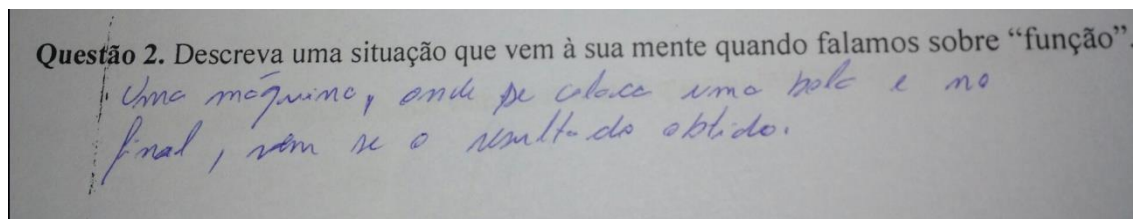 Questão 2. Descreva uma situação que vem à sua mente quando falamos sobre “função”.
Uma máquina, onde se coloca uma bola e no
final, vem se o resultado obtido.